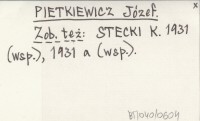 PIETKIEWICZ Józef.
Zob. też: STECKI K. 1931
(wsp.), 1931 a (wsp.).